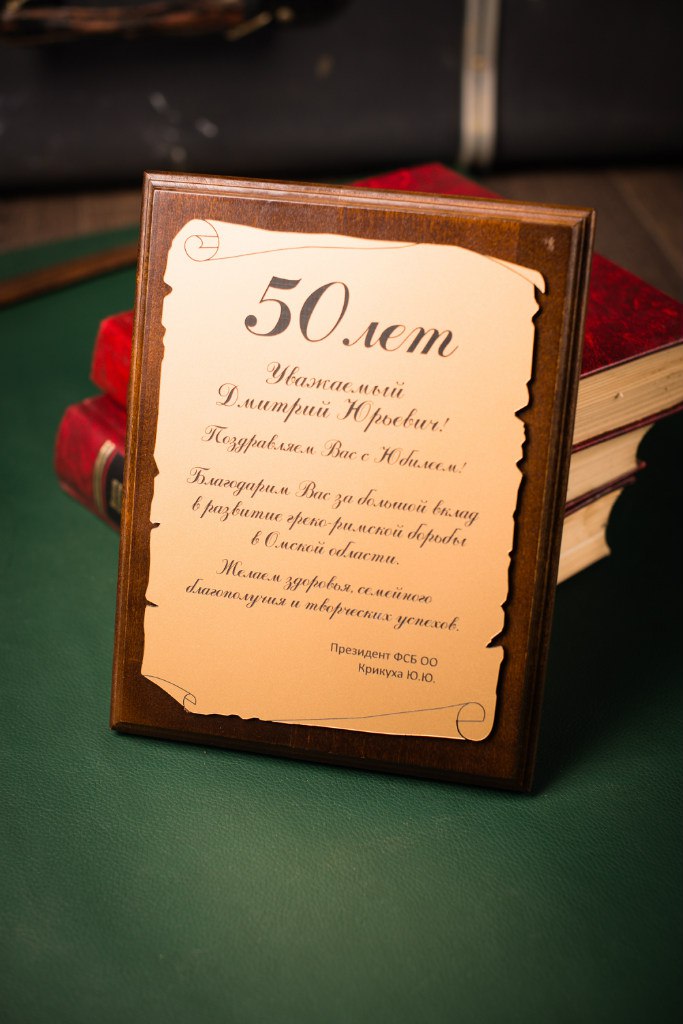 50 лет
Уважаемый
Дмитрий Юрьевич!
Поздравляем Вас с Юбилеем!
Благодарим Вас за большой вклад
в развитие греко-римской борьбы
в Омской области.
Желаем здоровья, семейного
благополучия и творческих успехов.
Президент ФСБ ОО
Крикуха Ю.Ю.